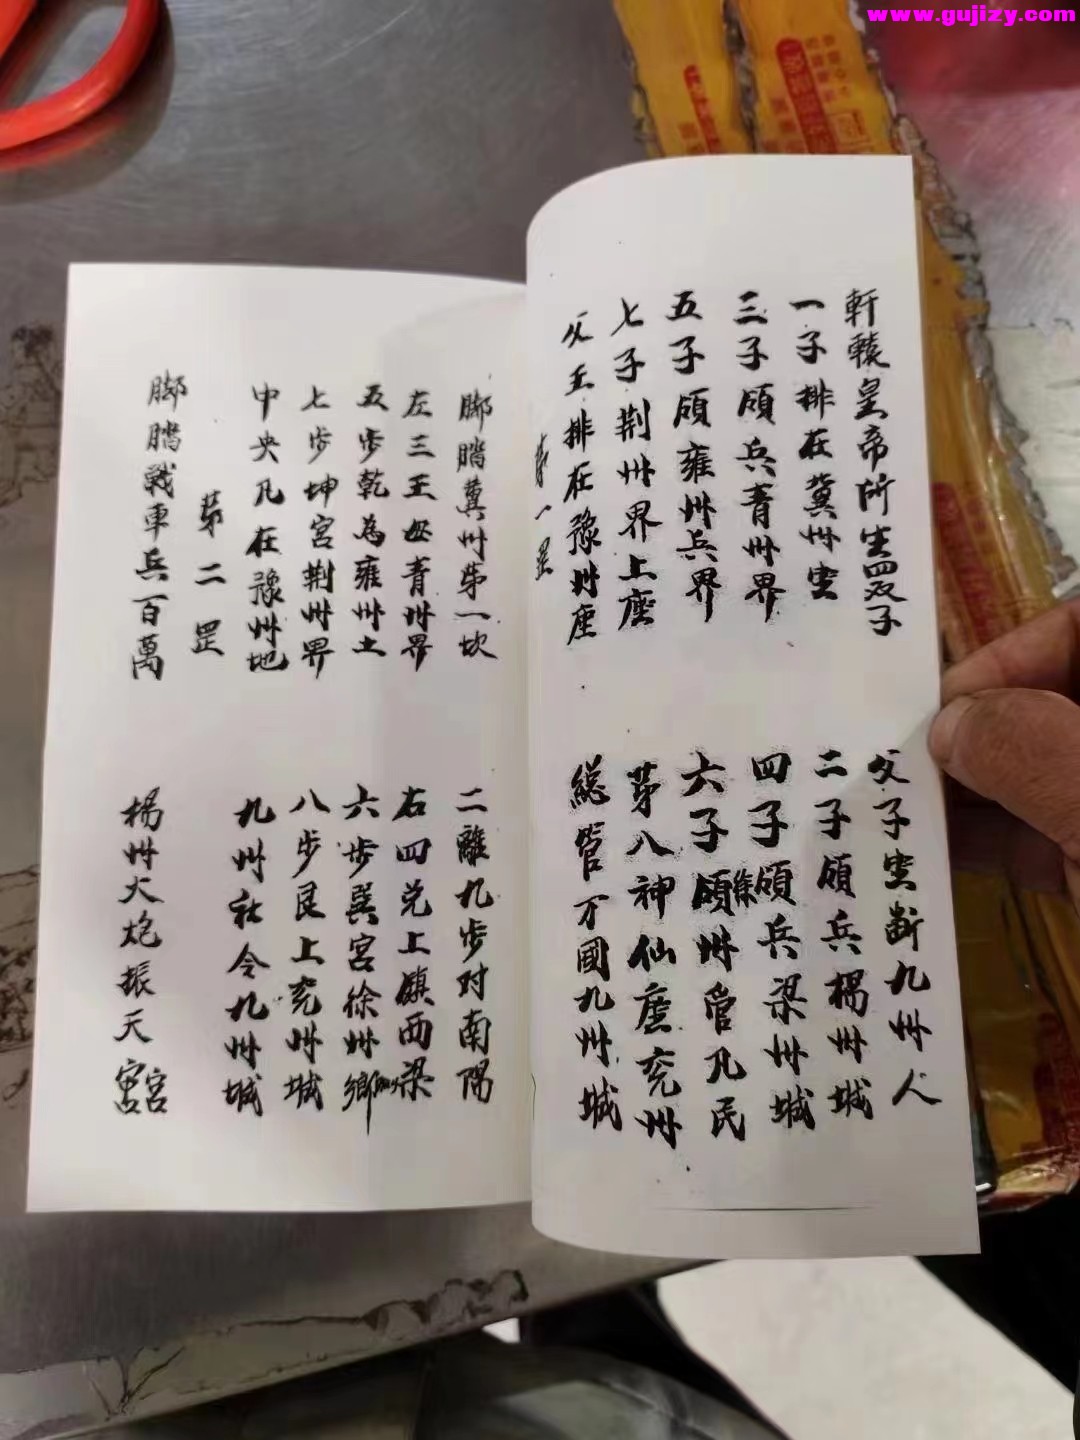 www.gujizy.com
軒轅皇帝所生四双子
父子坐断九州人
一子排在冀州坐
二子領兵楊州城
三子領兵青州界
四子領兵梁州城
五子領雍州兵界
六子領徐州管凡民
七子荆州界上座
第八神仙座兖州
父王排在豫州座
總管万國九州城
第一罡
脚踏冀州第一坎
二離九步对南陽
左三王母青州界
右四兑上鎮西梁
五步乾為雍州土
六步巽宮徐州鄉
七步坤宮荆州界
八步艮上兖州城
中央凡在豫州地
九州社令九州城
第二罡
脚踏戰車兵百萬
楊州火炮振天宮